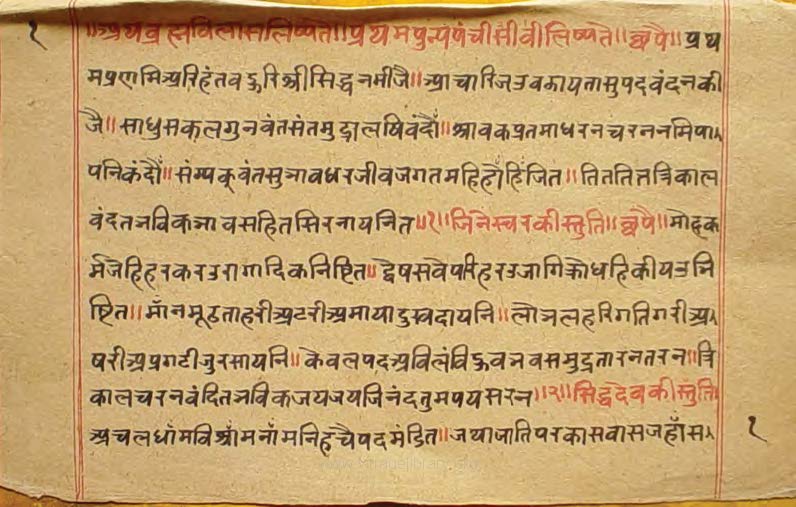 १ ॥अथब्रह्मविलासलिष्यते॥प्रथमपुन्यपंचीसीवीलिष्यते॥छपै॥प्रथ
मप्रणमिअरिहंतबहुरिश्रीसिद्धनमीजै॥आचारिजउवझायतासुपदवंदनकी
जै॥साधुसकलगुनवंतसंतमुद्रालषिवंदौं॥श्रावकप्रतमाधरनचरननमिपा
पनिकंदौं॥संम्यकवंतसुभावधरजीवजगतमहिहौंहिंजित॥तिततितत्रिकाल
वंदतभविकभावसहितसिरनायनित॥१॥जिनेस्वरकीस्तुति॥छपै॥मोहक
र्मजैहिहरकरउरागादिकनिष्टित॥द्वेषसवैपरिहरउजागिक्रोधहिकीयउनि
ष्टित॥माँनमूढताहरीअटरीअमायादुखदायनि॥लोभलहरिगतिगरीअ
षरीअप्रगटीजुरसायनि॥केवलपदअविलंविहुवभवसमुद्रतारनतरन॥त्रि
कालचरनवंदितभविकजयजयजिनंदतुमपयसरन॥२॥सिद्धदेवकीस्तुति
अचलधाँमविश्राँमनाँमनिहचैपदमंडित॥जथाजातिपरकासवासजहाँस १